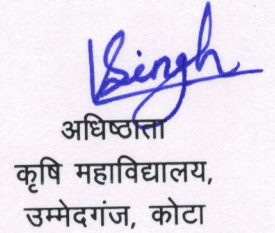 VSingh
अधिष्ठाता
कृषि महाविद्यालय,
उम्मेदगंज, कोटा